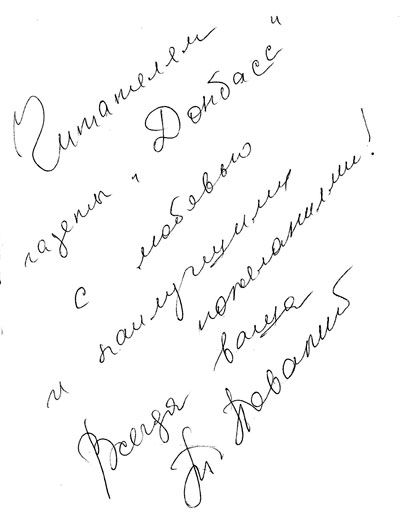 Читателям
газеты "Донбасс"
с любовью
и наилучшими
пожеланиями!
Всегда ваша
Т. Повалий